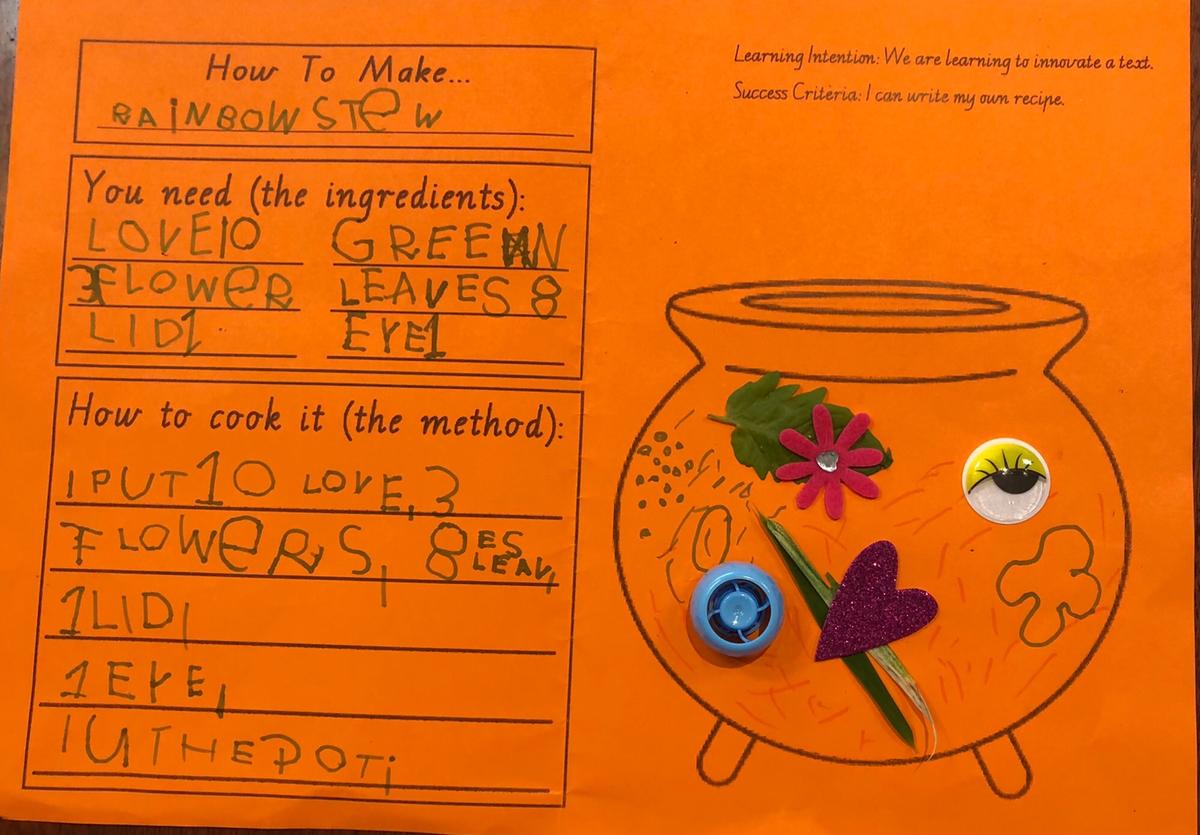 How To Make...
RAINBOW STEW
Learning Intention: We are learning to innovate a text.
Success Criteria: I can write my own recipe.
You need (the ingredients):
LOVE10 GREEN
3FLOWER LEAVES 8
LID1 EYE1
How to cook it (the method):
I PUT 10 LOVE, 3
FLOWERS, 8 LEAVES,
1LID,
1 EYE,
IU THE POT